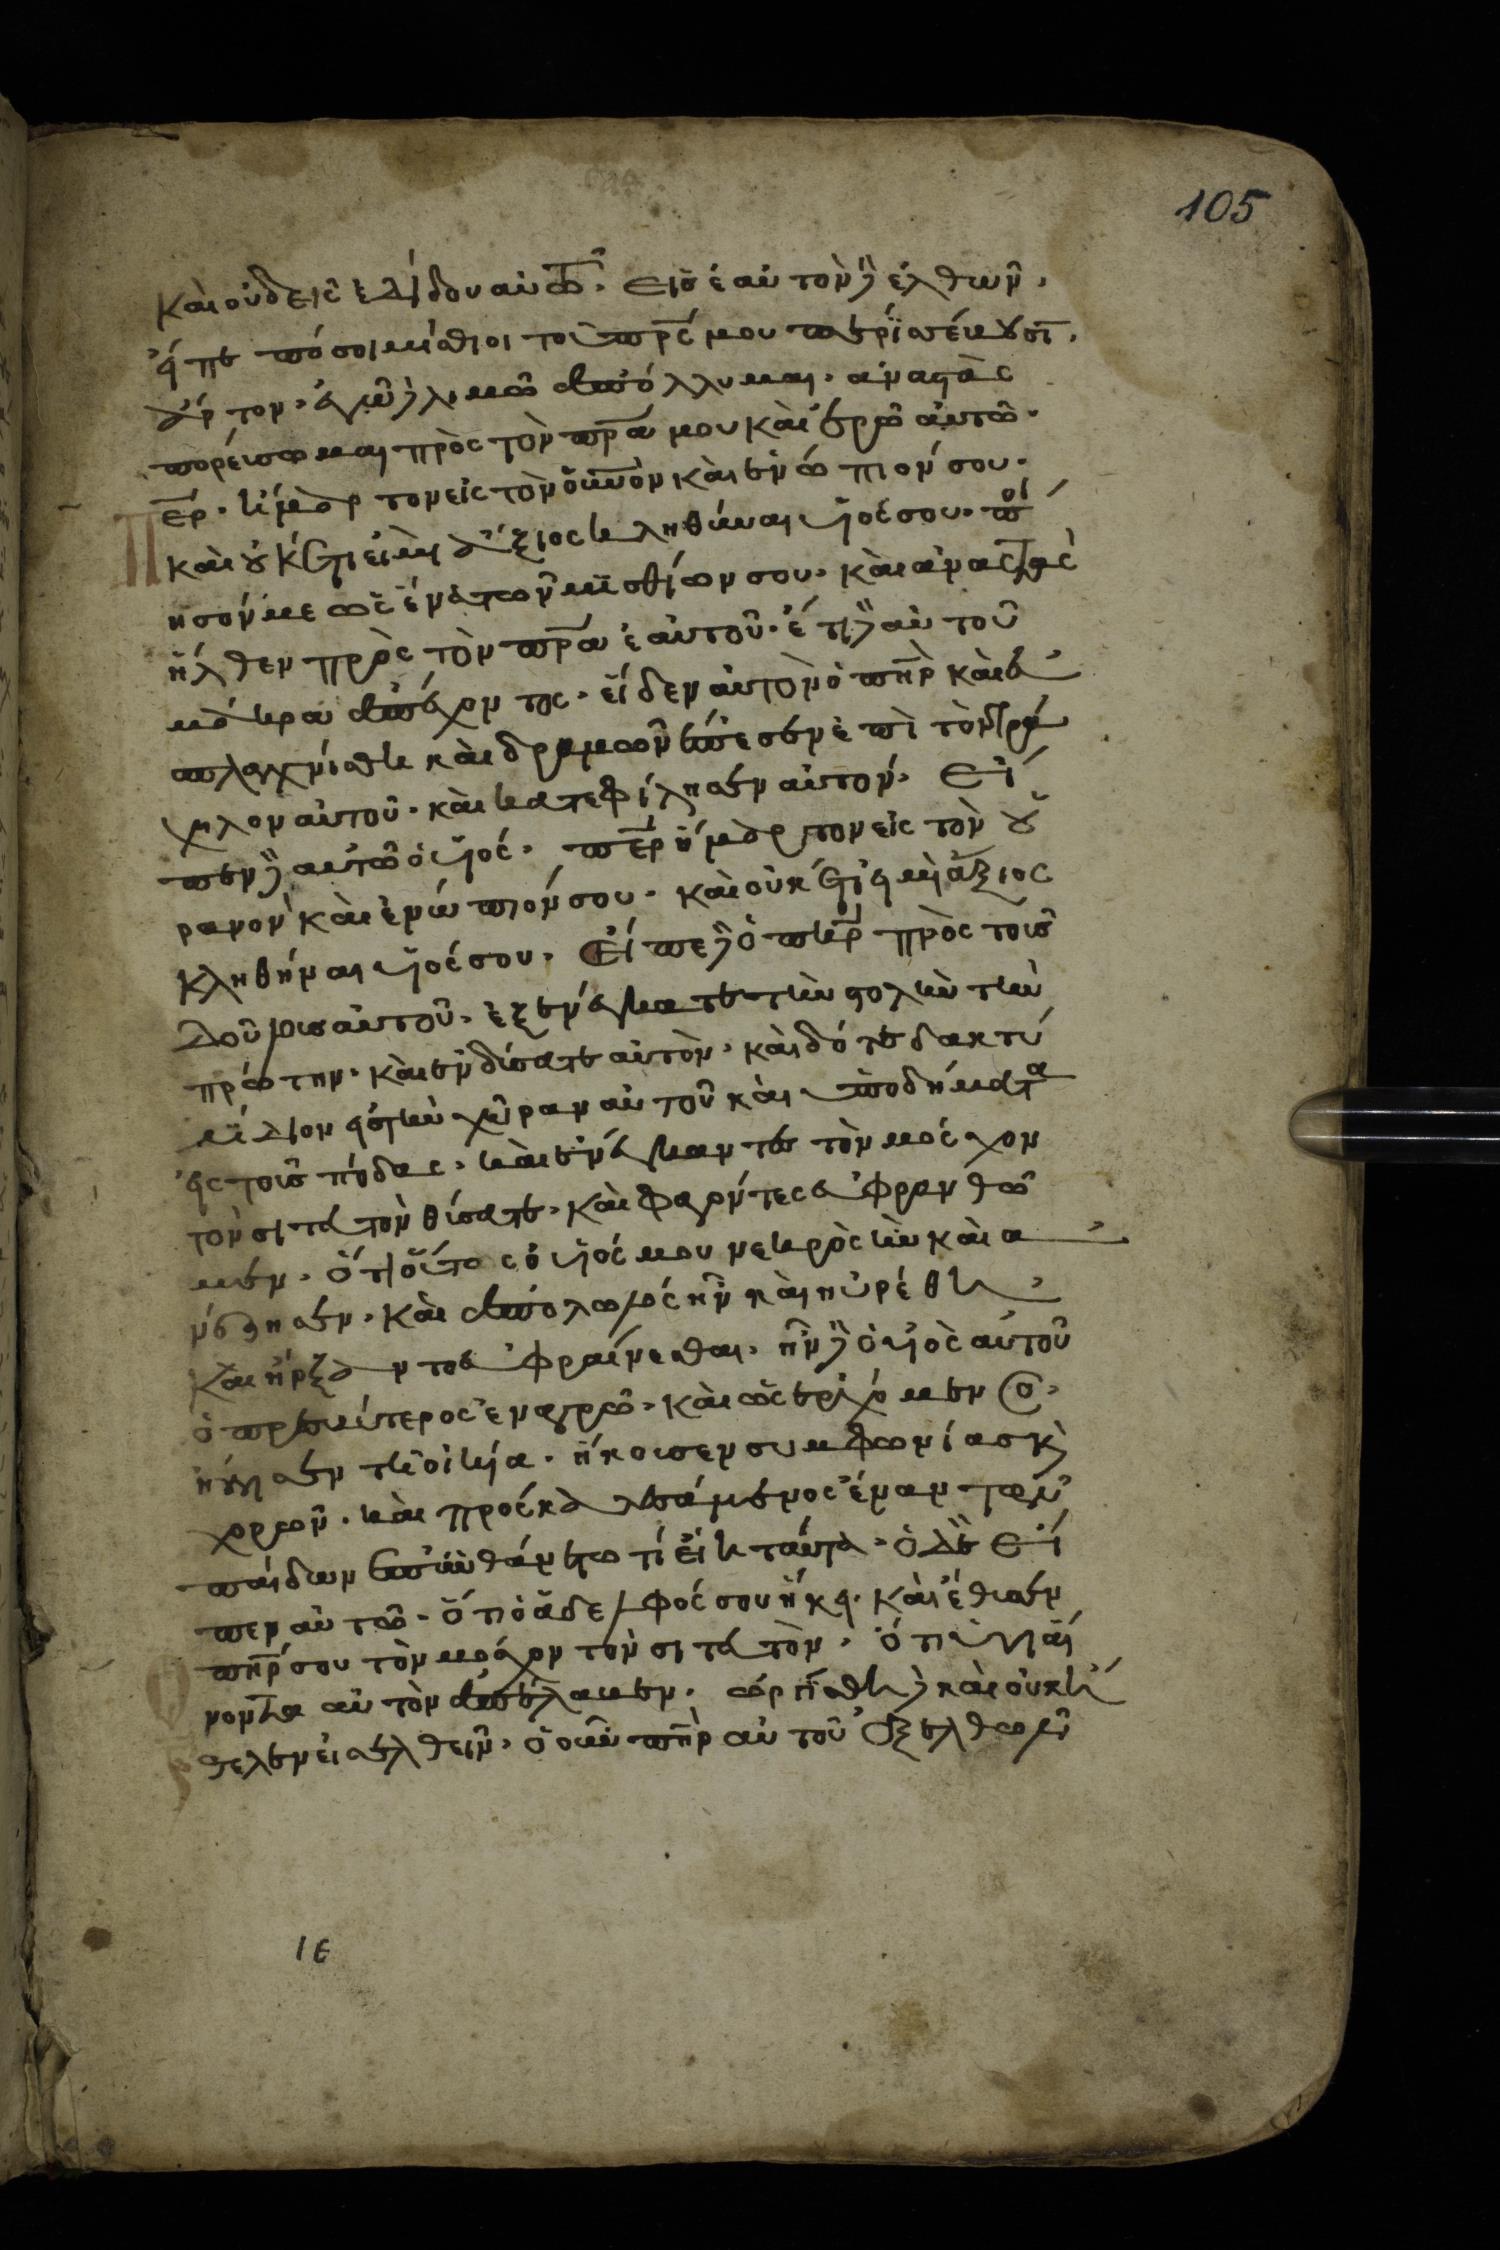 105
καὶ οὐδεὶς ἐδίδου αὐτῶ. εἰς ἑαυτὸν δὲ ἐλθὼν.
εἶπε πόσοι μίσθιοι τοῦ πρς μου περισσεύουσιν
ἄρτον. ἐγὼ δὲ λιμῶ ἀπόλλυμαι. ἀναστὰς
πορεύσωμαι πρὸς τὸν πρα μου καὶ ἐρῶ αὐτῶ.
περ. ἥμαρτον εἰς τὸν οὐνὸν καὶ ἐνώπιόν σου.
καὶ οὐκέτι εἰμὶ ἄξιος κληθῆναι υἱός σου. ποί
ησόν με ὡς ἕνα τῶν μισθίων σου. καὶ ἀναστὰς
ἦλθεν πρὸς τὸν πρα ἑαυτοῦ. ἔτι δὲ αὐτοῦ
μακρὰν ἀπέχοντος. εἶδεν αὐτὸν ὁ πηρ καὶ ἐ
σπλαχνίσθη καὶ δραμὼν ἐπέπεσεν ἐπὶ τὸν τρά
χηλον αὐτοῦ. καὶ κατεφίλησεν αὐτόν. εἶ
πεν δὲ αὐτῶ ὁ υἱός. περ ἥμαρτον εἰς τὸν οὐ
ρανὸν καὶ ἐνώπιόν σου. καὶ οὐκέτι εἰμὶ ἄξιος
κληθῆναι υἱός σου. εἶπε δὲ ὁ πηρ πρὸς τοὺς
δούλους αὐτοῦ. ἐξενέγκατε τὴν στολὴν τὴν
πρώτην. καὶ ἐνδύσατε αὐτὸν. καὶ δότε δακτύ
λιον εἰς τὴν χεῖραν αὐτοῦ καὶ ὑποδήματα
εἰς τοὺς πόδας. καὶ ἐνέγκαντες τὸν μόσχον
τὸν σιτευτὸν θύσατε. καὶ φαγόντες εὐφρανθῶ
μεν. ὅτι οὗτος ὁ υἱός μου νεκρὸς ἦν καὶ ἀ
νέζησεν. καὶ ἀπολωλός ἦν καὶ ηὑρέθη.
καὶ ἤρξαντο εὐφραίνεσθαι. ἦν δὲ ὁ υἱὸς αὐτοῦ
ὁ πρεσβύτερος ἐν αγρῶ. καὶ ὡς ἐρχόμενος
ἤγγισεν τῆ οἰκία. ἤκουσεν συμφωνίας καὶ
χορῶν. καὶ προσκαλεσάμενος ἕναν τῶν
παίδων ἐπυνθάνετο τί εἴη ταῦτα. ὁ δὲ εἶ
πεν αὐτῶ. ὅτι ὁ ἀδελφός σου ἥκει. καὶ ἔθυσεν
πηρ σου τὸν μόσχον τὸν σιτευτὸν. ὅτι ὑγιαί
νοντα αὐτὸν ἀπέλαβεν. ὠργίσθη δὲ καὶ οὐκ ἤ
θελεν εἰσελθεῖν. ὁ οὖν πηρ αὐτοῦ ἐξελθὼν
ιε